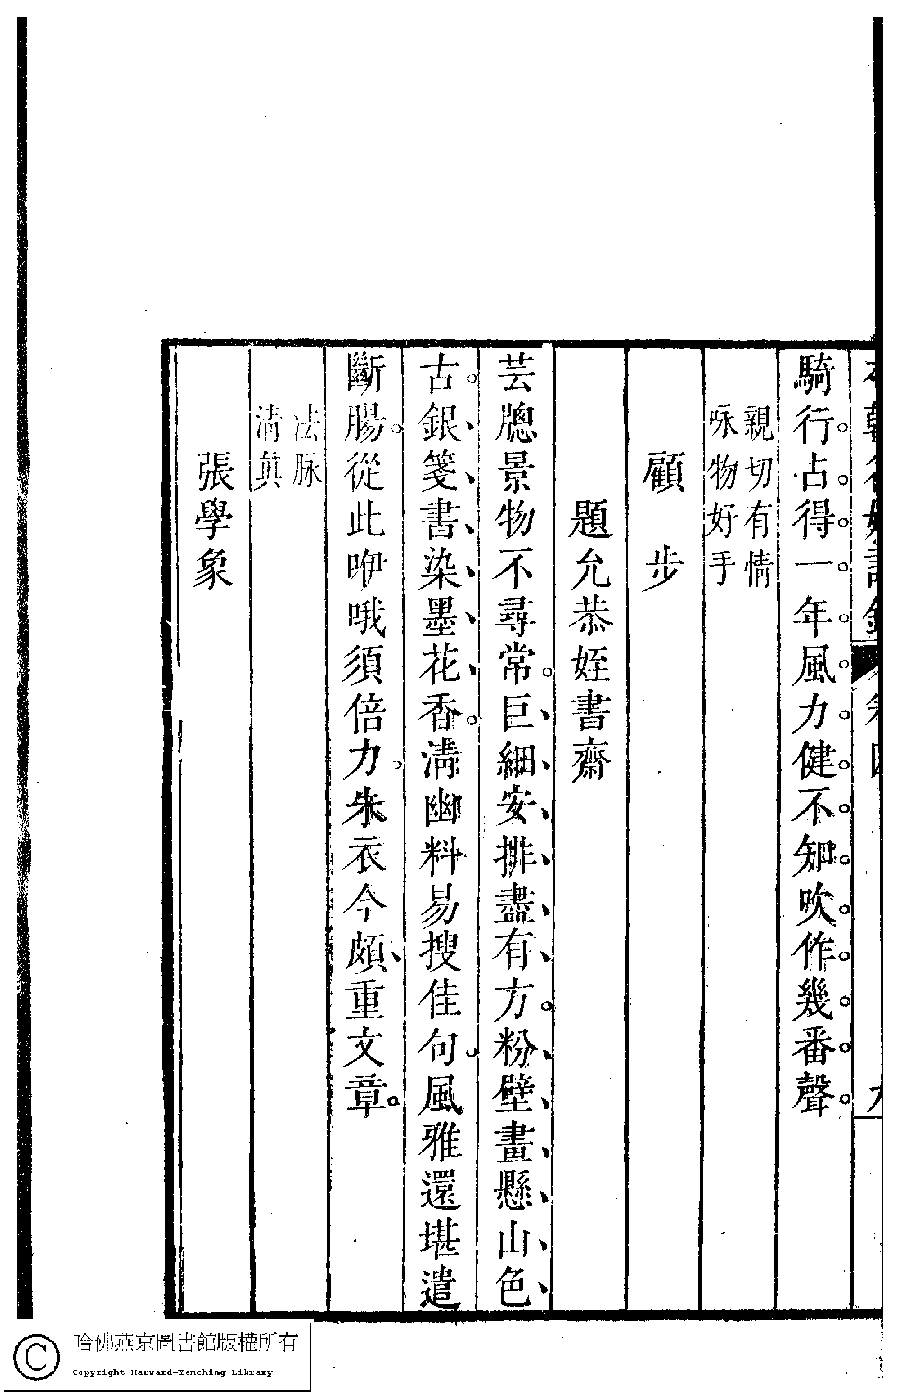 騎行占得一年風力健不知吹作幾番聲
親切有情
咏物好手
顧步
題允恭姪書齋
芸牎景物不尋常巨細安排盡有方粉壁畫懸山色
古銀箋書染墨花香清幽料易搜佳句風雅還堪遣
斷腸從此咿哦須倍力朱衣今頗重文章
法脉
清真
張學象
哈佛燕京圖書館版權所有
Copyright Harvard-Yenching Library